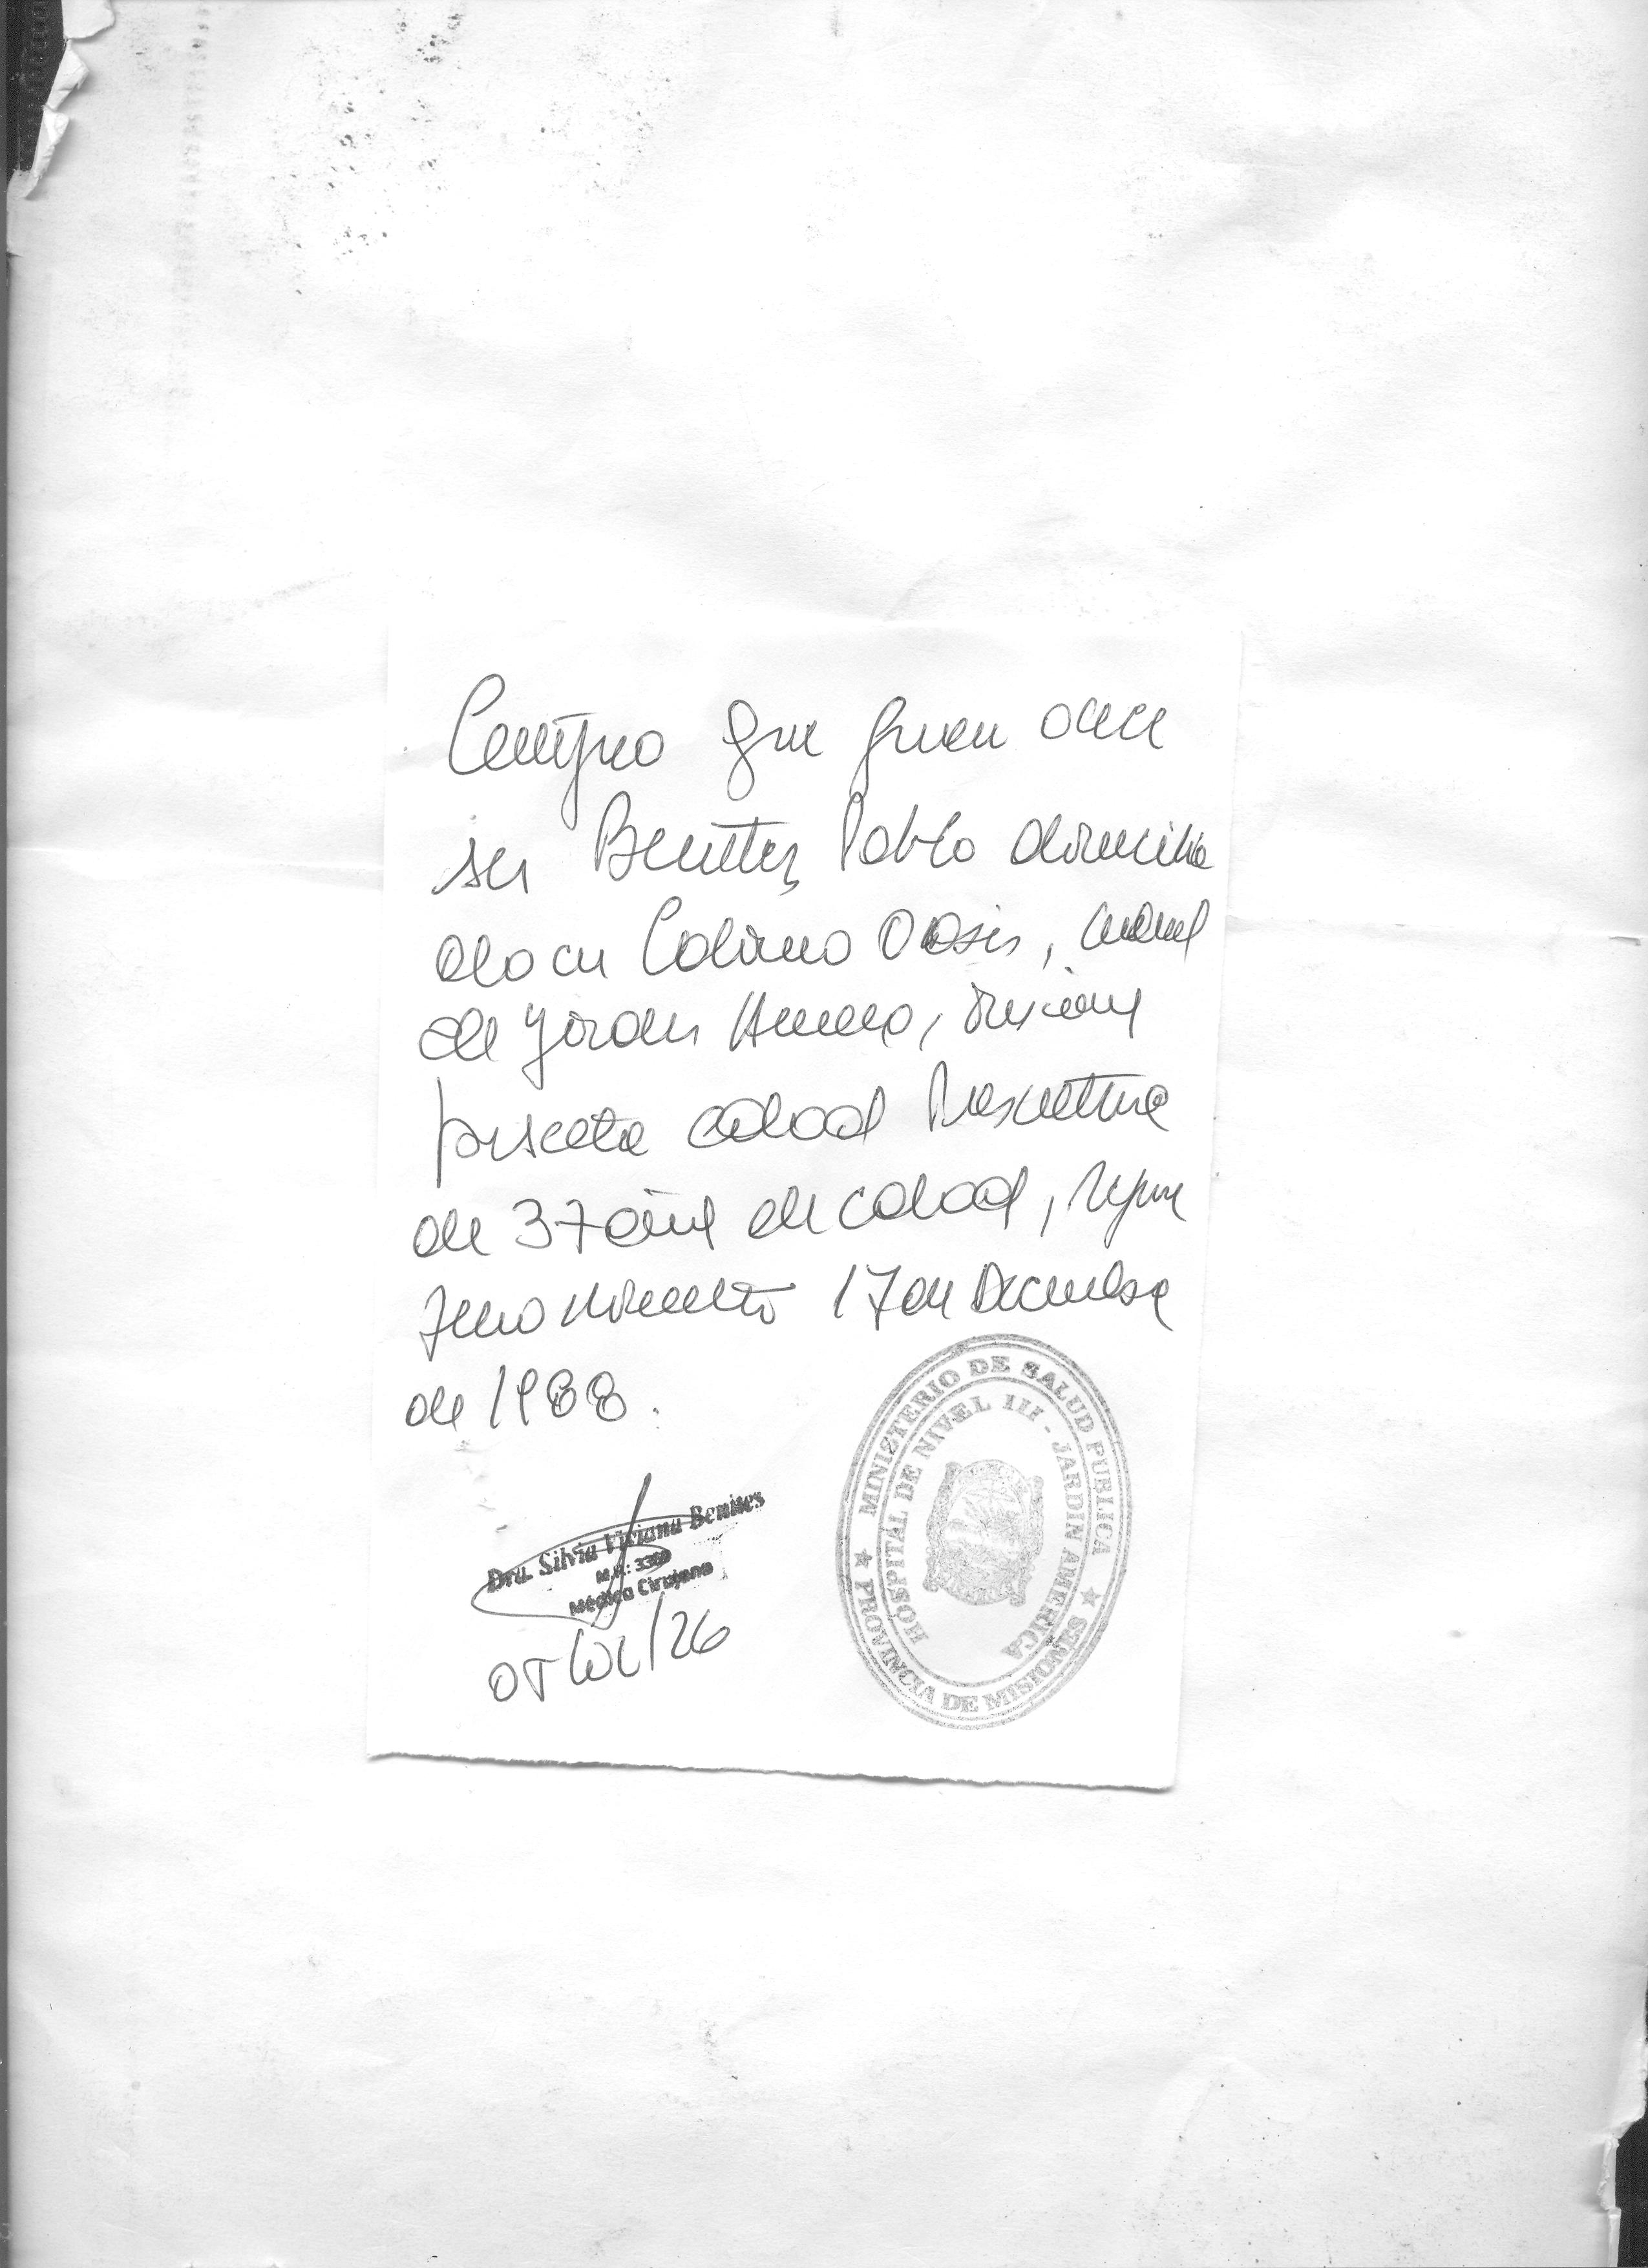 Certifico que quien dice
ser Benitez, Pablo domicilia
do en Colonia Oasis, ciudad
de Jardin America, Misiones
presenta edad Presuntiva
de 37 años de edad, segun
nacimiento 17 de Diciembre
de 1988.
Dra. Silvia Viviana Benites
M.P.: 3360
Médica Cirujana
/26
MINISTERIO DE SALUD PUBLICA
HOSPITAL DE NIVEL III - JARDIN AMERICA
★ PROVINCIA DE MISIONES ★